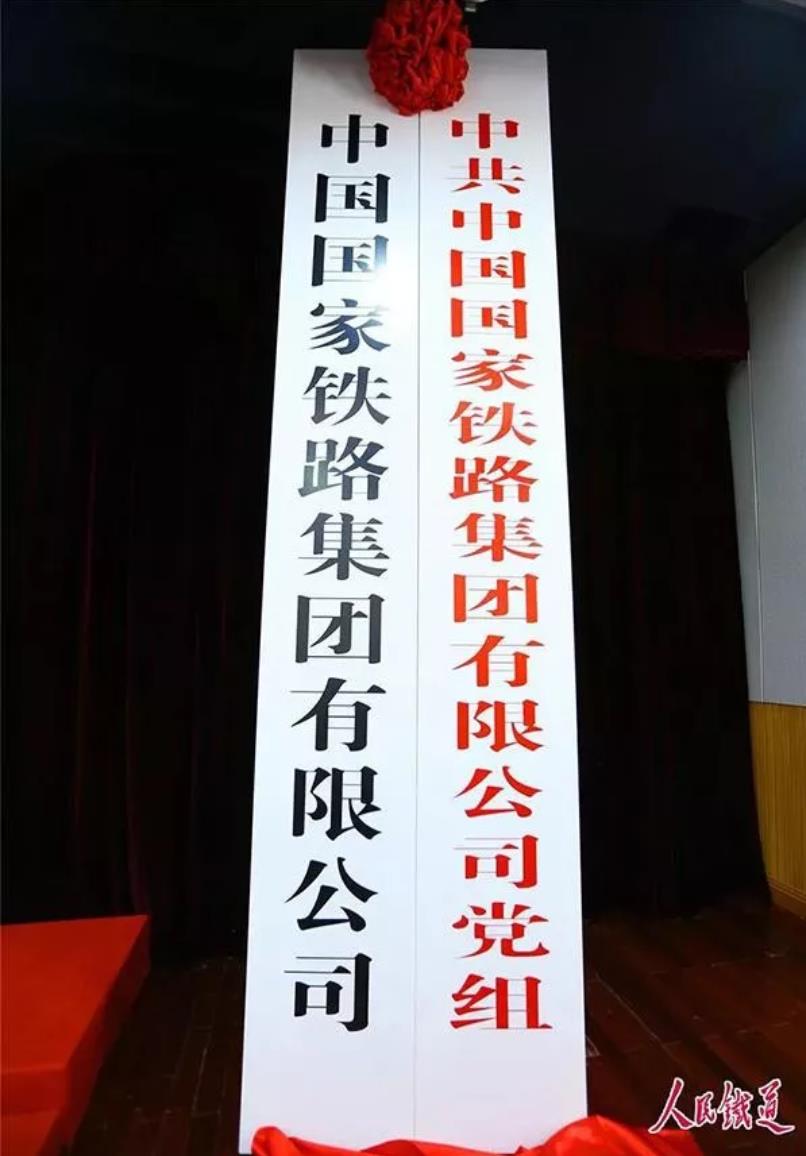 中共中国国家铁路集团有限公司党组
中国国家铁路集团有限公司
人民鐵道